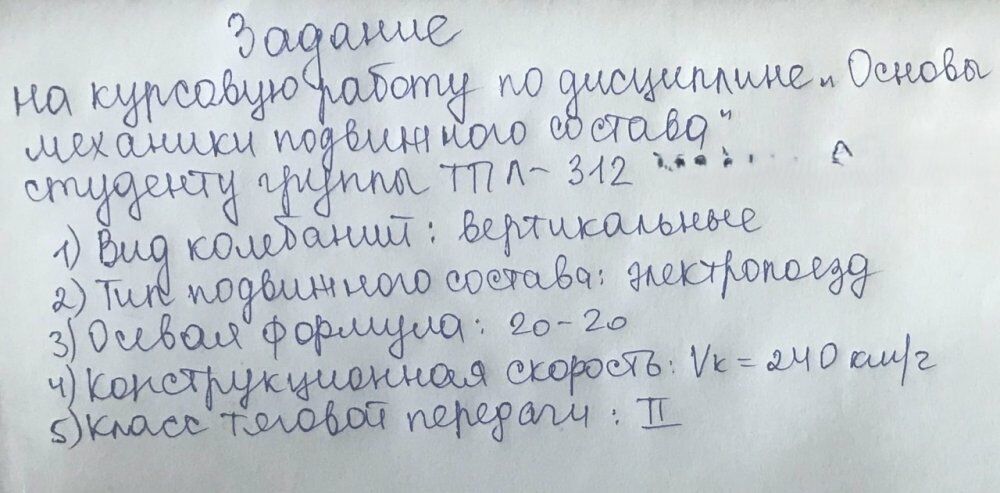 Задание
на курсовую работу по дисциплине „Основы
механики подвижного состава"
студенту группы ТПЛ-312
1) Вид колебаний: вертикальные
2) Тип подвижного состава: электропоезд
3) Осевая формула: 20-20
4) Конструкционная скорость: Vк = 240 км/г
5) Класс тяговой передачи: II